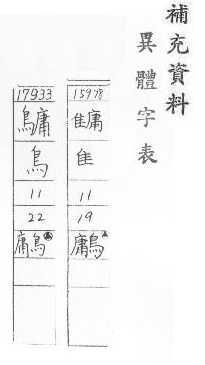 補充資料
異體字表
15978
隹庸
隹
11
19
鷛
17933
鳥庸
鳥
11
22
鷛